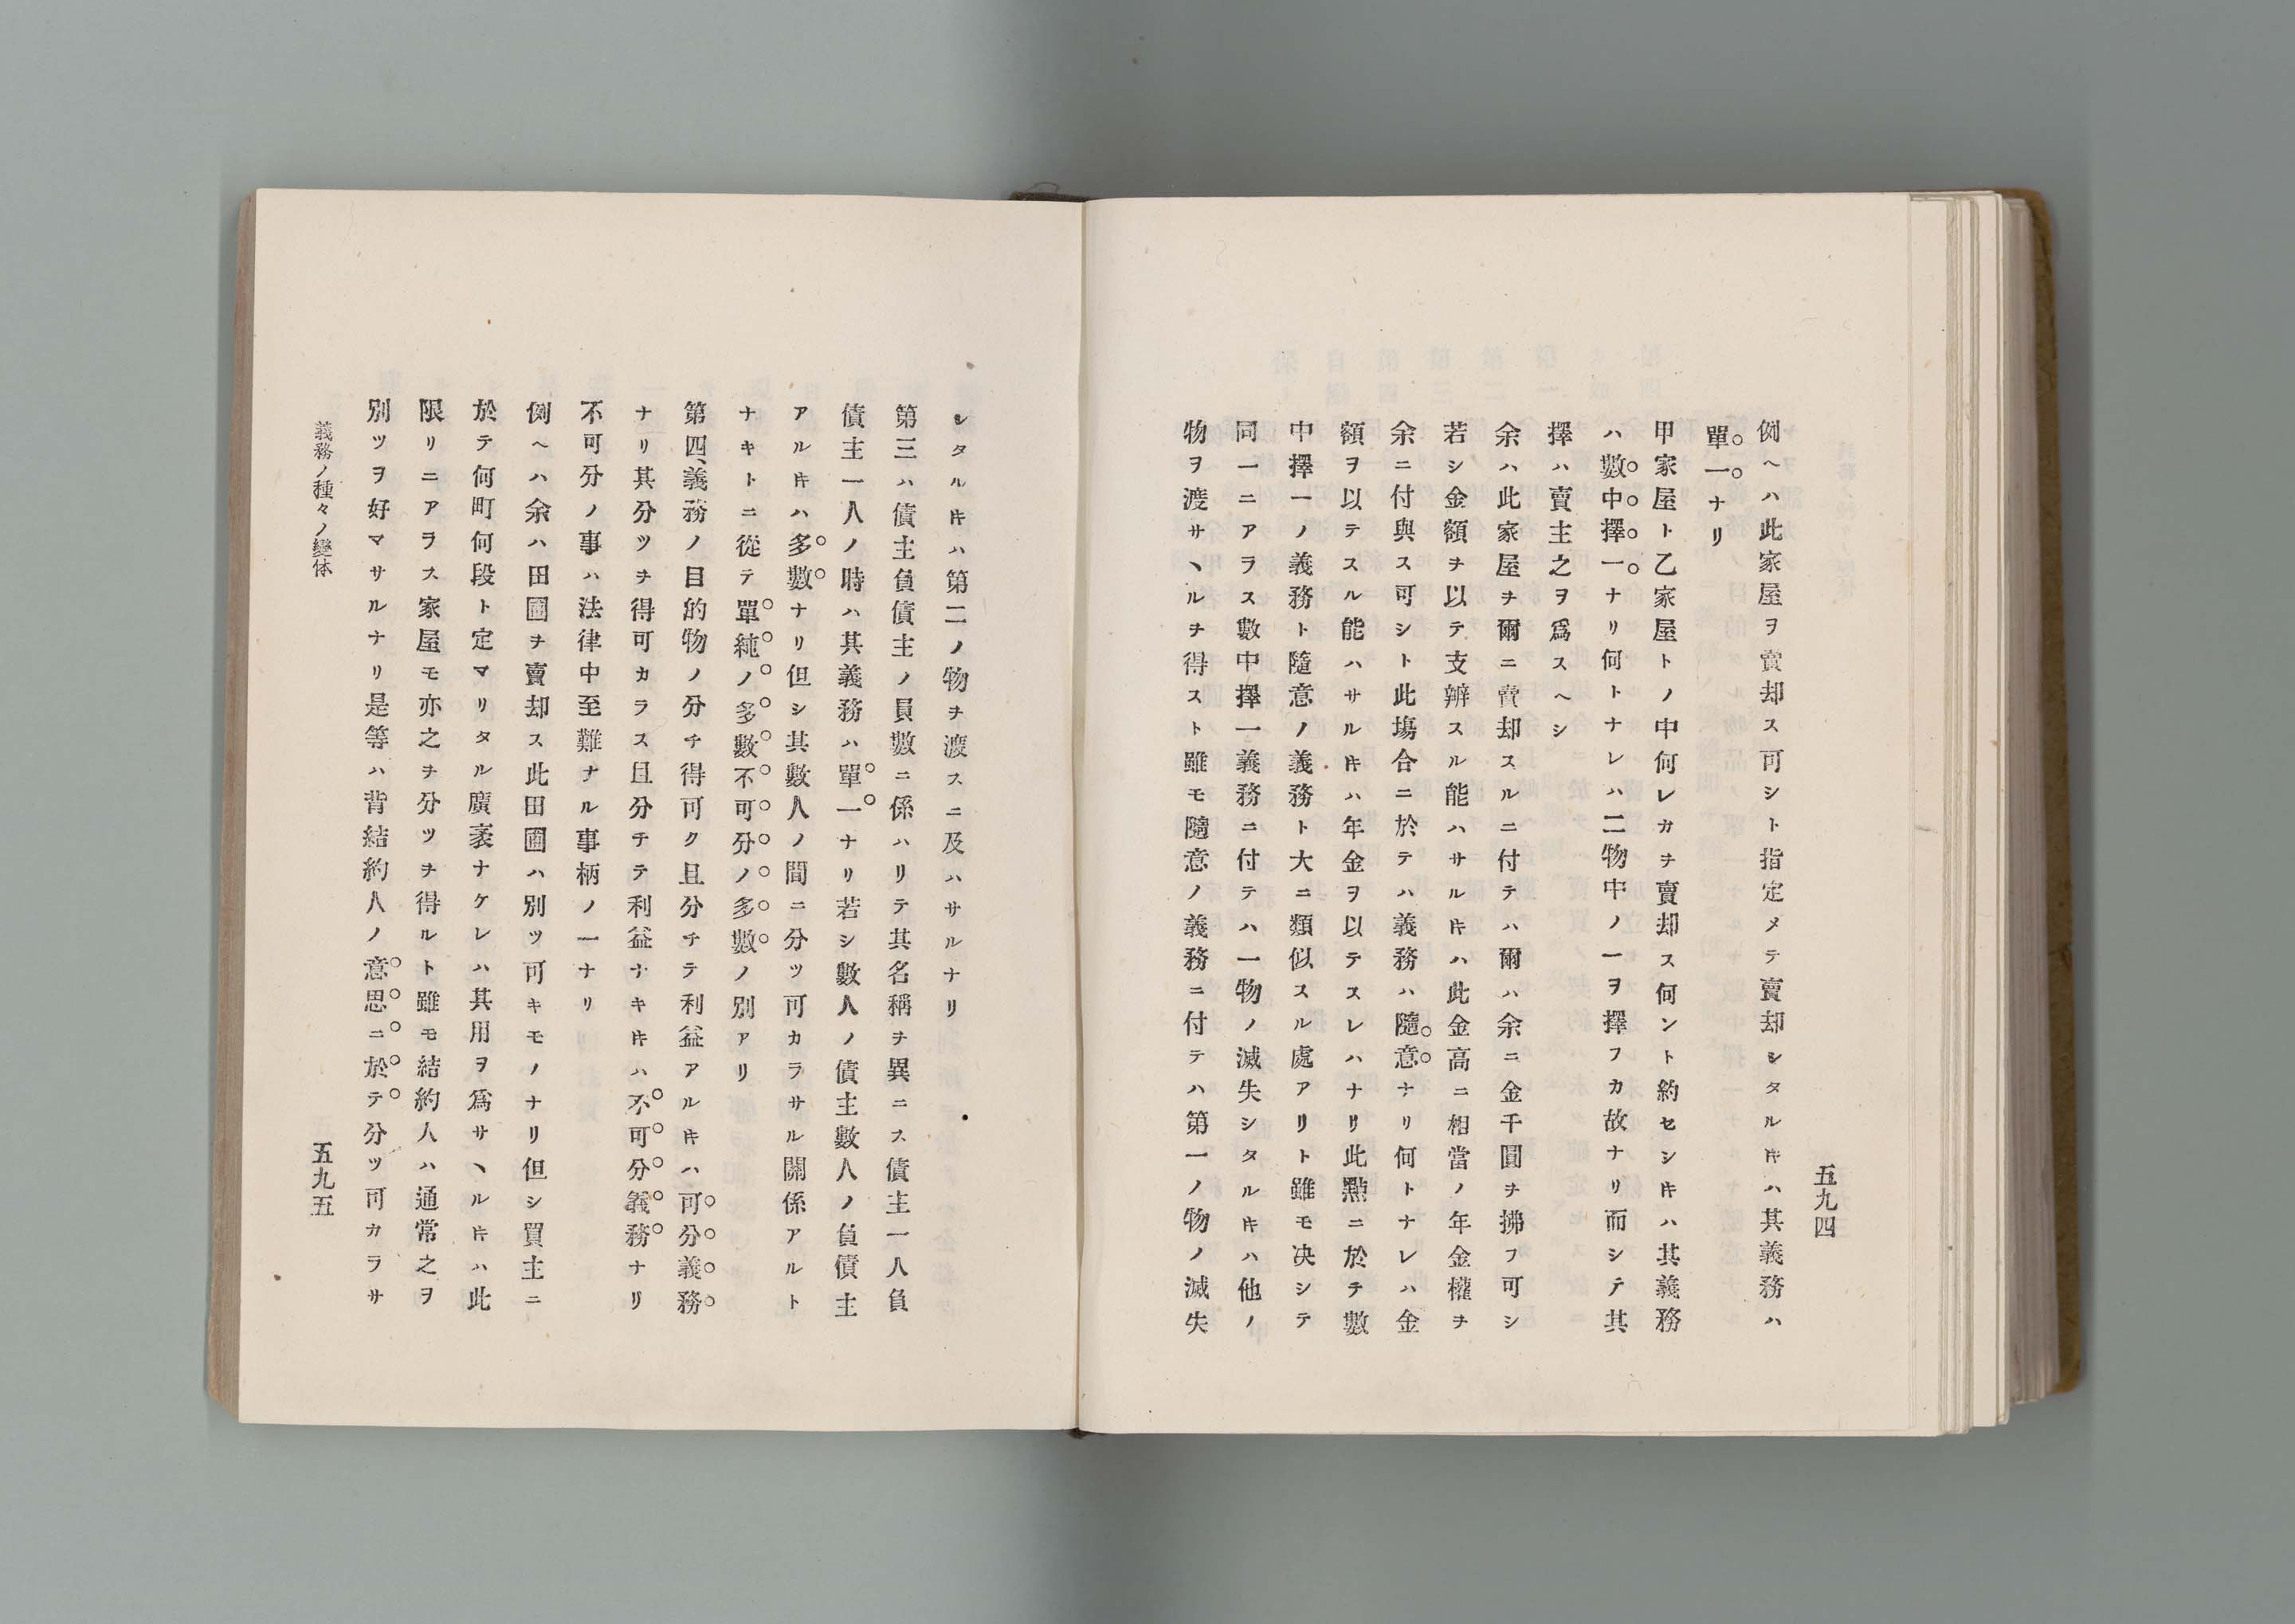 五九四
例ヘハ此家屋ヲ賣却ス可シト指定メテ賣却シタルキハ其義務ハ
單一ナリ
甲家屋ト乙家屋トノ中何レカヲ賣却ス何ント約セシキハ其義務
ハ數中擇一ナリ何トナレハ二物中ノ一ヲ擇フカ故ナリ而シテ其
擇ハ賣主之ヲ爲スヘシ
余ハ此家屋ヲ爾ニ賣却スルニ付テハ爾ハ余ニ金千圓ヲ拂フ可シ
若シ金額ヲ以テ支辨スル能ハサルキハ此金高ニ相當ノ年金權ヲ
余ニ付與ス可シト此塲合ニ於テハ義務ハ隨意ナリ何トナレハ金
額ヲ以テスル能ハサルキハ年金ヲ以テスレハナリ此點ニ於テ數
中擇一ノ義務ト隨意ノ義務ト大ニ類似スル處アリト雖モ决シテ
同一ニアラス數中擇一義務ニ付テハ一物ノ滅失シタルキハ他ノ
物ヲ渡サヽルヲ得スト雖モ隨意ノ義務ニ付テハ第一ノ物ノ滅失
シタルキハ第二ノ物ヲ渡スニ及ハサルナリ
第三ハ債主負債主ノ員數ニ係ハリテ其名稱ヲ異ニス債主一人負
債主一人ノ時ハ其義務ハ單一ナリ若シ數人ノ債主數人ノ負債主
アルキハ多數ナリ但シ其數人ノ間ニ分ツ可カラサル關係アルト
ナキトニ從テ單純ノ多數不可分ノ多數ノ別アリ
第四、義務ノ目的物ノ分チ得可ク且分チテ利益アルキハ可分義務
ナリ其分ツヲ得可カラス且分チテ利益ナキキハ不可分義務ナリ
不可分ノ事ハ法律中至難ナル事柄ノ一ナリ
例ヘハ余ハ田圃ヲ賣却ス此田圃ハ別ツ可キモノナリ但シ買主ニ
於テ何町何段ト定マリタル廣袤ナケレハ其用ヲ爲サヽルキハ此
限リニアラス家屋モ亦之ヲ分ツヲ得ルト雖モ結約人ハ通常之ヲ
別ツヲ好マサルナリ是等ハ背結約人ノ意思ニ於テ分ツ可カラサ
義務ノ種々ノ變体
五九五